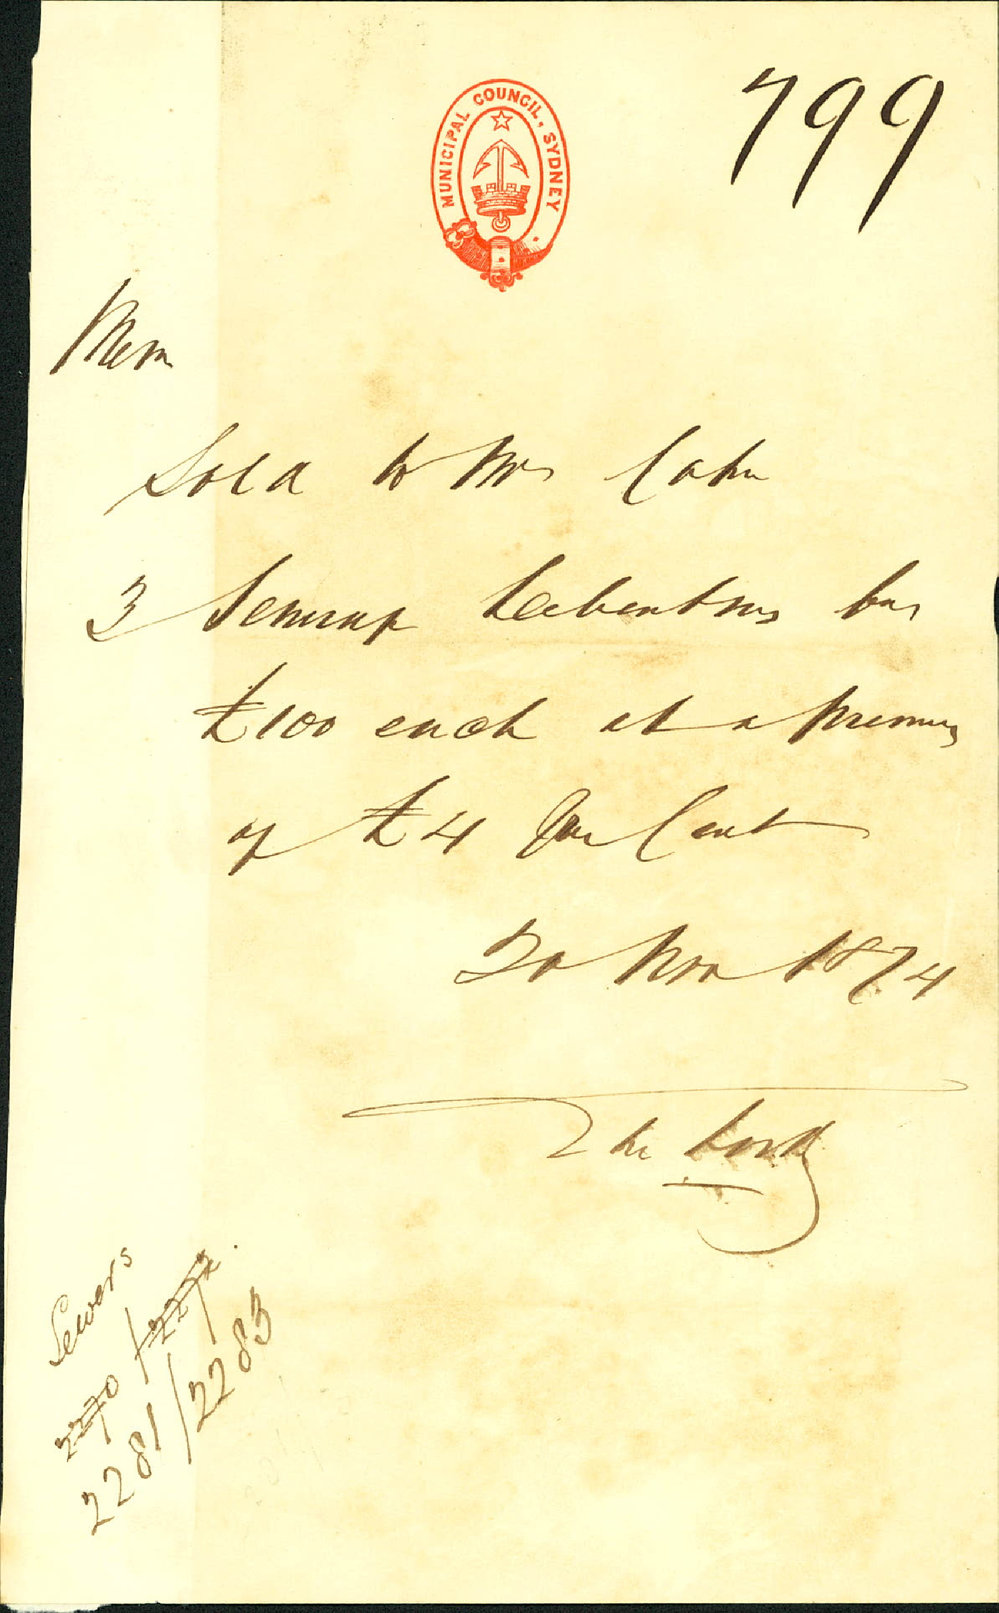 799
MUNICIPAL COUNCIL, SYDNEY
Mem
Sold to Mr Cohen
3 Sewerage Debentures for
£100 each at a Premium
of £4 Per Cent
20 Nov 1874
Sewers
2270 / 2272
2281 / 2283